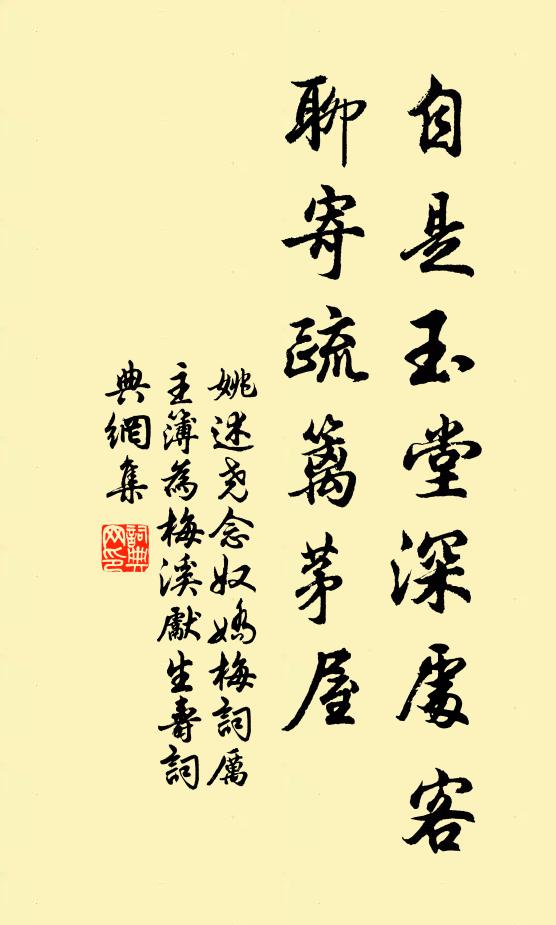 自是玉堂深處客
聊寄疏籬茅屋
姚述堯念奴嬌梅詞厲
主簿為梅溪獻生壽詞
典網集
詞典
網印